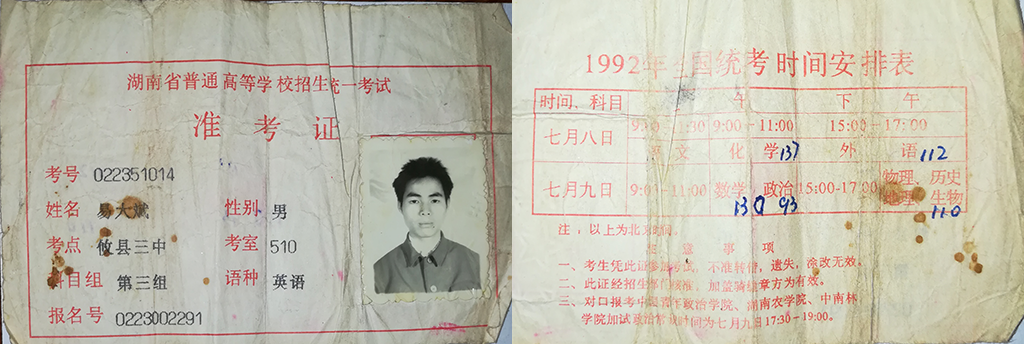 湖南省普通高等学校招生统一考试
准考证
考号 022351014
姓名 易大斌 性别 男
考点 攸县三中 考室 510
科目组 第三组 语种 英语
报名号 0223002291
1992年全国统考时间安排表
时间、科目 午 下午
七月八日 9:00-11:00 15:00-17:00
文 化学 137 外语 112
七月九日 9:00-11:00 数学 政治 15:00-17:00 物理、历史
地理、生物
130 93 110
注:以上为北京时间。
注意事项
一、考生凭此证参加考试,不准转借,遗失,涂改无效。
二、此证经招生部门核准,加盖骑缝章方为有效。
三、对口报考中国青年政治学院、湖南农学院、中南林
学院加试政治常识时间为七月九日17:30-19:00。